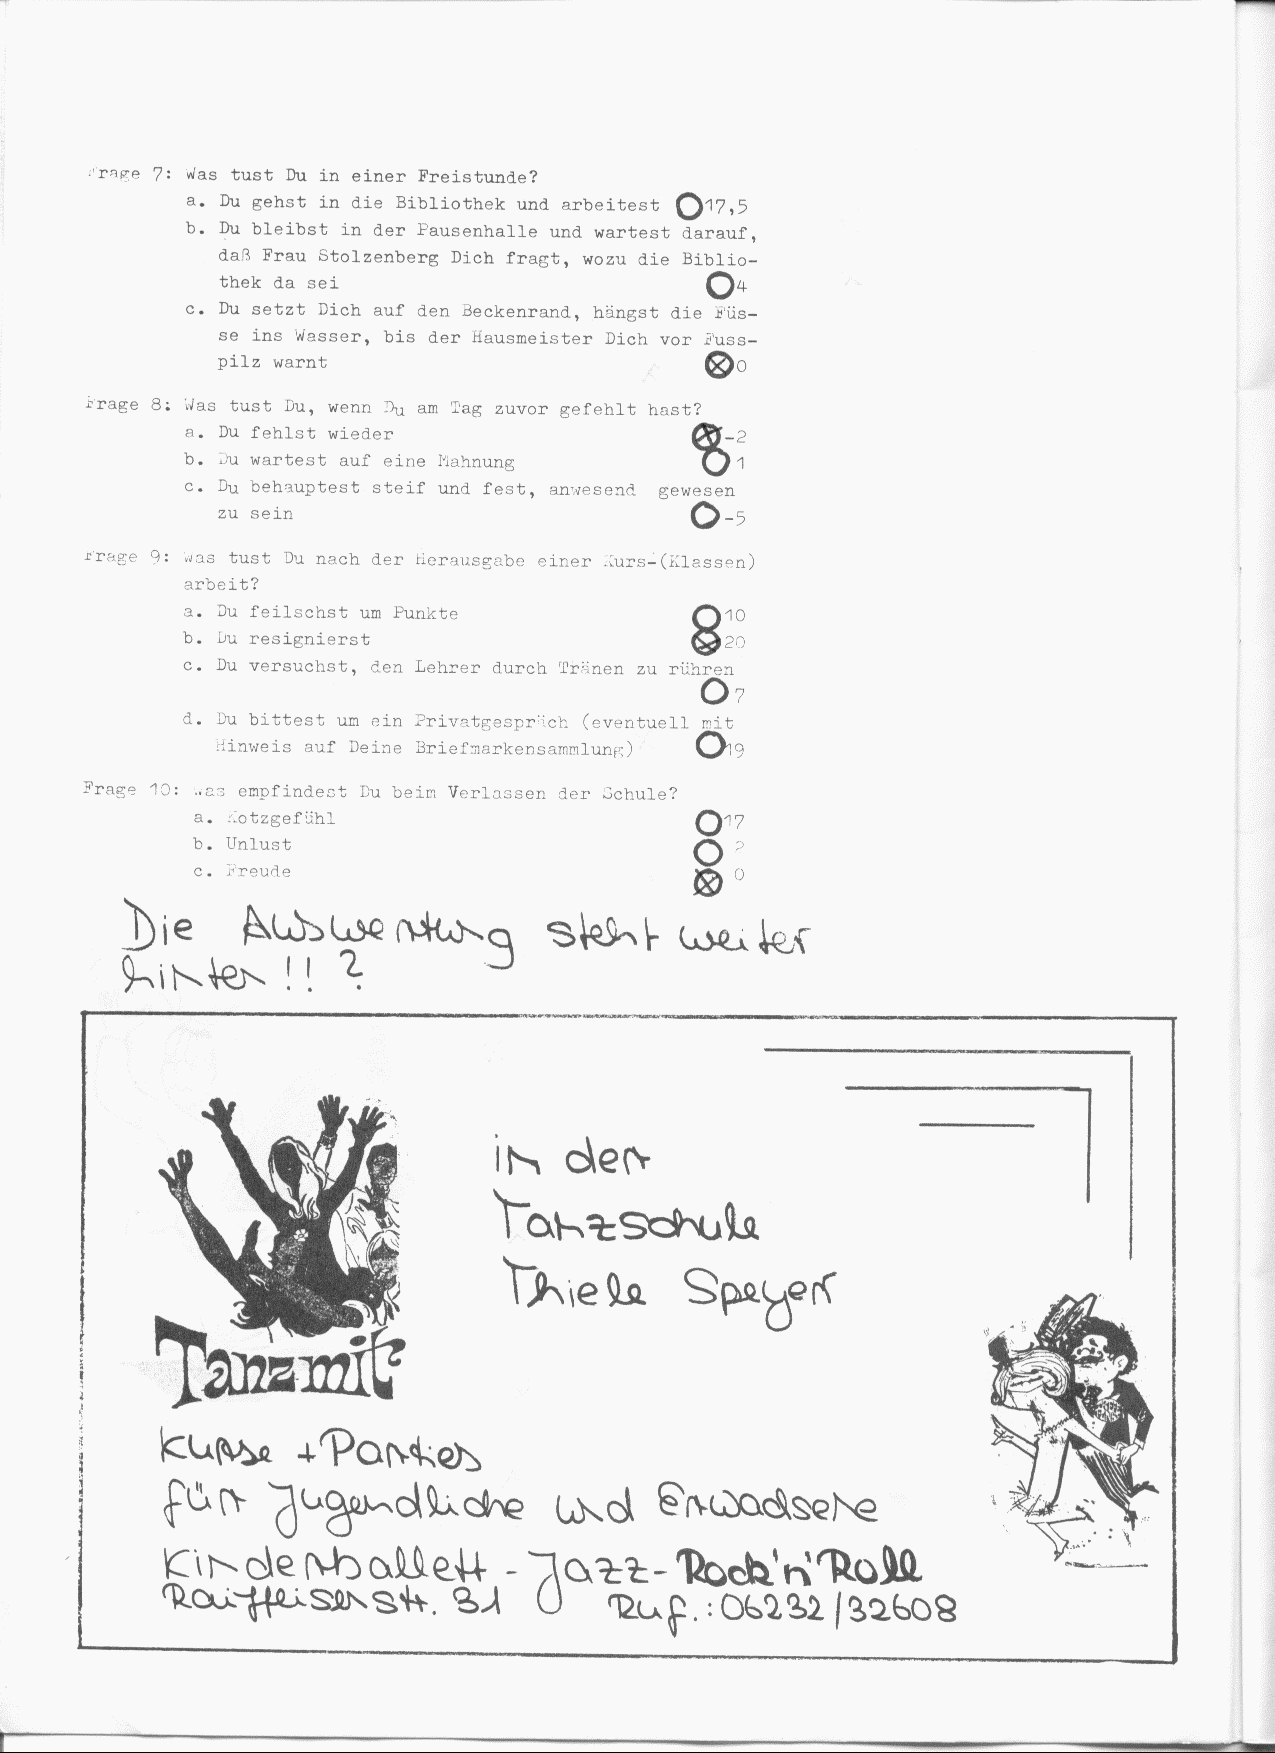 Frage 7: Was tust Du in einer Freistunde?
a. Du gehst in die Bibliothek und arbeitest 17,5
b. Du bleibst in der Pausenhalle und wartest darauf,
daß Frau Stolzenberg Dich fragt, wozu die Biblio-
thek da sei 4
c. Du setzt Dich auf den Beckenrand, hängst die Füs-
se ins Wasser, bis der Hausmeister Dich vor Fuss-
pilz warnt 0
Frage 8: Was tust Du, wenn Du am Tag zuvor gefehlt hast?
a. Du fehlst wieder -2
b. Du wartest auf eine Mahnung 1
c. Du behauptest steif und fest, anwesend gewesen
zu sein -5
Frage 9: Was tust Du nach der Herausgabe einer Kurs-(Klassen)
arbeit?
a. Du feilschst um Punkte 10
b. Du resignierst 20
c. Du versuchst, den Lehrer durch Tränen zu rühren
7
d. Du bittest um ein Privatgespräch (eventuell mit
Hinweis auf Deine Briefmarkensammlung) 19
Frage 10: Was empfindest Du beim Verlassen der Schule?
a. Kotzgefühl 17
b. Unlust 2
c. Freude 0
Die Auswertung steht weiter
hinten!! ?
in der
Tanzschule
Thiele Speyer
Tanz mit
Kurse + Parties
für Jugendliche und Erwachsene
Kinderballett - Jazz - Rock'n'Roll
Raiffeisenstr. 31 Ruf.: 06232/32608